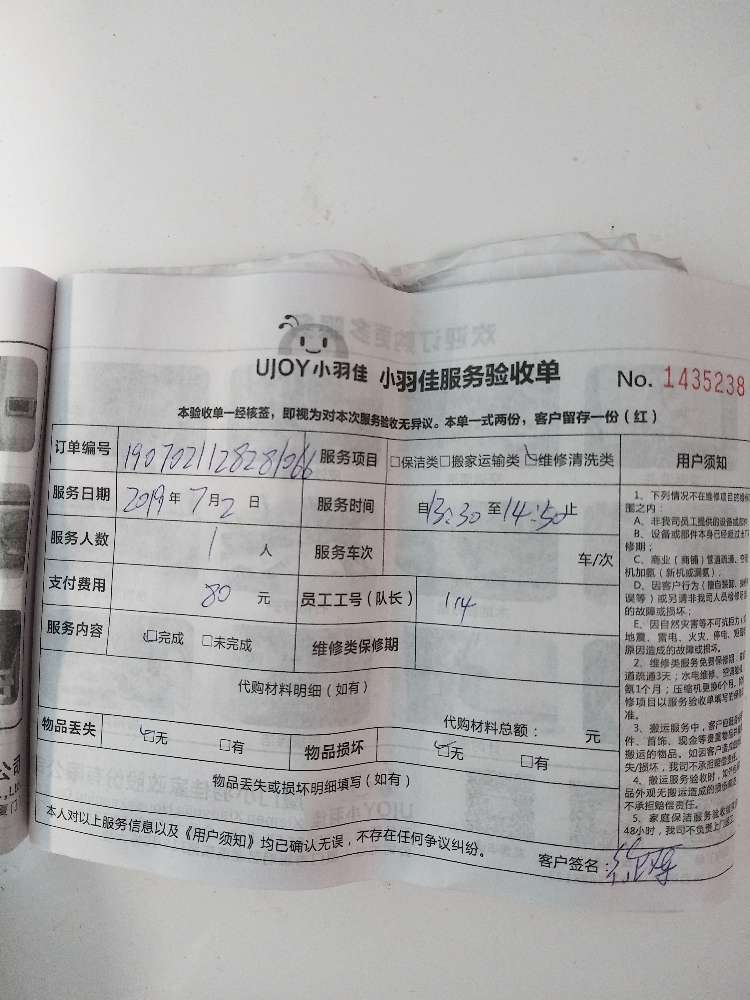 UJOY小羽佳 小羽佳服务验收单 No. 1435238
本验收单一经核签，即视为对本次服务验收无异议。本单一式两份，客户留存一份（红）
订单编号 1907021128281066 服务项目 □保洁类□搬家运输类☑维修清洗类 用户须知
服务日期 2019年7月2日 服务时间 自13:30至14:50止
服务人数 1人 服务车次 车/次
支付费用 80元 员工工号（队长） 114
服务内容 ☑完成 □未完成 维修类保修期
代购材料明细（如有）
代购材料总额： 元
物品丢失 ☑无 □有 物品损坏 ☑无 □有
物品丢失或损坏明细填写（如有）
本人对以上服务信息以及《用户须知》均已确认无误，不存在任何争议纠纷。
客户签名：
1、下列情况不在维修项目的
围之内：
A、非我司员工提供的设备或
B、设备或部件本身已经超过
修期；
C、商业（商铺）管道疏通、空
机加氨（新机或漏氨）
D、因客户行为（擅自装卸、
误等）或另请非我司人员维修
的故障或损坏；
E、因自然灾害等不可抗拒力
地震、雷电、火灾、停电、
原因造成的故障或损坏。
2、维修类服务免费保修期：
道疏通3天；水电维修、空调
氨1个月；压缩机更换6个月，
修项目以服务验收单填写的
准。
3、搬运服务中，客户应
件、首饰、现金等贵重物品
搬运的物品。如因客户
失/损坏，我司不承担赔偿责任。
4、搬运服务验收时，
品外观无搬运造成的损伤
不承担赔偿责任。
5、家庭保洁服务验收
48小时，我司不负责上门返工